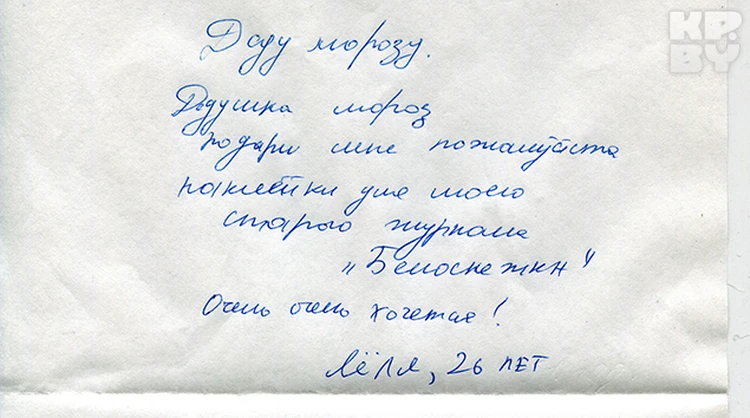 KP.
BY
Деду морозу.
Дедушка мороз
подари мне пожалуйста
наклейки для моего
старого журнала
"Белоснежки"
Очень очень хочется!
Лёля, 26 лет